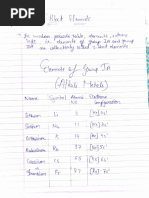 Block Elements
In modern periodic table, elements extreme
left i.e. elements of group IA and group
IIA are collectively called s-block elements
Elements of Group IA
(Alkali Metals)
Name Symbol Atomic Electronic
No Configuration
Lithium Li 3 [He] 2s¹
Sodium Na 11 [Ne] 3s¹
Potassium K 19 [Ar] 4s¹
Rubidium Rb 37 [Kr] 5s¹
Cesium Cs 55 [Xe] 6s¹
Francium Fr 87 [Rn] 7s¹